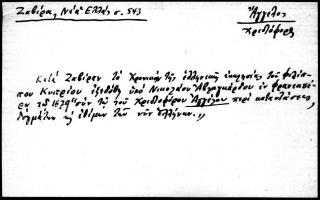 Ζαβίρα, Νέα Ἑλλάς σ. 543
Ἄγγελος
Χριστόφορος
Κατὰ Ζαβίραν τὸ Χρονικὸν τῆς ἑλληνικῆς ἐκκλησίας τοῦ Φιλίπ-
που Κυπρίου ἐξεδόθη ὑπὸ Νικολάου
τῷ 1679 σὺν τῷ τοῦ Χριστοφόρου Ἀγγέλου περὶ καταστάσεως
δογμάτων καὶ ἐθίμων τῶν νῦν Ἑλλήνων.